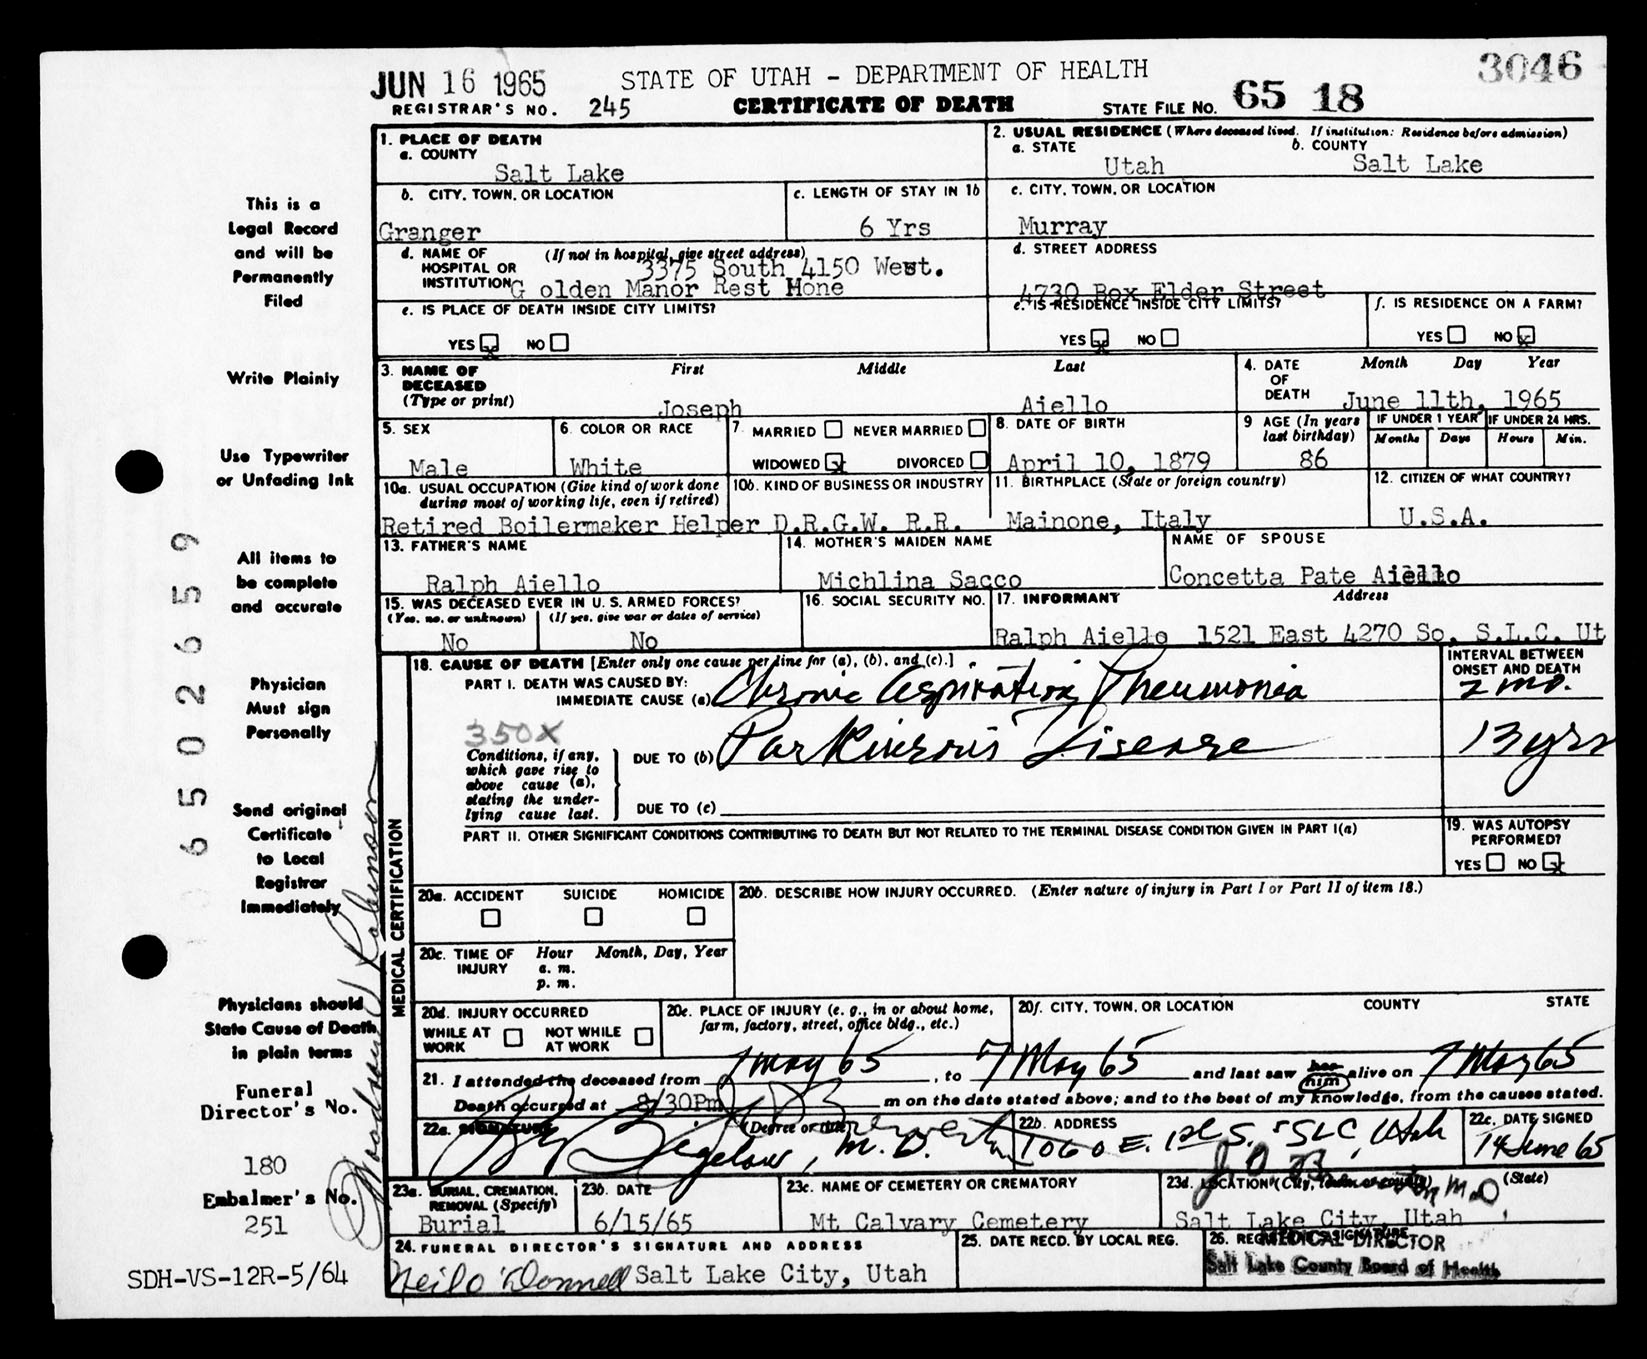 3046
JUN 16 1965 STATE OF UTAH - DEPARTMENT OF HEALTH
REGISTRAR'S NO. 245 CERTIFICATE OF DEATH STATE FILE NO. 65 18
1. PLACE OF DEATH
a. COUNTY
Salt Lake
2. USUAL RESIDENCE (Where deceased lived. If institution: Residence before admission)
a. STATE b. COUNTY
Utah Salt Lake
b. CITY, TOWN, OR LOCATION
Granger
c. LENGTH OF STAY IN 1b
6 Yrs
c. CITY, TOWN, OR LOCATION
Murray
d. NAME OF HOSPITAL OR INSTITUTION (If not in hospital, give street address)
3375 South 4150 West.
G olden Manor Rest Home
d. STREET ADDRESS
4730 Box Elder Street
e. IS PLACE OF DEATH INSIDE CITY LIMITS?
YES x NO
e. IS RESIDENCE INSIDE CITY LIMITS?
YES x NO
f. IS RESIDENCE ON A FARM?
YES NO x
3. NAME OF DECEASED (Type or print)
First Middle Last
Joseph Aiello
4. DATE OF DEATH
Month Day Year
June 11th, 1965
5. SEX
Male
6. COLOR OR RACE
White
7. MARRIED NEVER MARRIED
WIDOWED x DIVORCED
8. DATE OF BIRTH
April 10, 1879
9 AGE (In years last birthday)
86
IF UNDER 1 YEAR
Months Days
IF UNDER 24 HRS.
Hours Min.
10a. USUAL OCCUPATION (Give kind of work done during most of working life, even if retired)
Retired Boilermaker Helper
10b. KIND OF BUSINESS OR INDUSTRY
D.R.G.W. R.R.
11. BIRTHPLACE (State or foreign country)
Mainone, Italy
12. CITIZEN OF WHAT COUNTRY?
U.S.A.
13. FATHER'S NAME
Ralph Aiello
14. MOTHER'S MAIDEN NAME
Michlina Sacco
NAME OF SPOUSE
Concetta Pate Aiello
15. WAS DECEASED EVER IN U.S. ARMED FORCES?
(Yes, no, or unknown) (If yes, give war or dates of service)
No No
16. SOCIAL SECURITY NO.
17. INFORMANT Address
Ralph Aiello 1521 East 4270 So. S.L.C. Ut
MEDICAL CERTIFICATION
18. CAUSE OF DEATH [Enter only one cause per line for (a), (b), and (c).]
INTERVAL BETWEEN ONSET AND DEATH
PART I. DEATH WAS CAUSED BY:
IMMEDIATE CAUSE (a) Chronic Aspiration Pneumonia 2 mo.
350X
Conditions, if any, which gave rise to above cause (a), stating the underlying cause last.
DUE TO (b) Parkinsons Disease 13 yrs
DUE TO (c)
PART II. OTHER SIGNIFICANT CONDITIONS CONTRIBUTING TO DEATH BUT NOT RELATED TO THE TERMINAL DISEASE CONDITION GIVEN IN PART I(a)
19. WAS AUTOPSY PERFORMED?
YES NO x
20a. ACCIDENT SUICIDE HOMICIDE
20b. DESCRIBE HOW INJURY OCCURRED. (Enter nature of injury in Part I or Part II of item 18.)
20c. TIME OF INJURY Hour Month, Day, Year
a. m.
p. m.
20d. INJURY OCCURRED
WHILE AT WORK NOT WHILE AT WORK
20e. PLACE OF INJURY (e. g., in or about home, farm, factory, street, office bldg., etc.)
20f. CITY, TOWN, OR LOCATION COUNTY STATE
21. I attended the deceased from 7 May 65, to 7 May 65 and last saw her him alive on 7 May 65
Death occurred at 8/30Pm m on the date stated above; and to the best of my knowledge, from the causes stated.
22a. SIGNATURE (Degree or title)
Bigelow, M.D.
22b. ADDRESS
1060 E. 1st S. SLC, Utah
22c. DATE SIGNED
14 June 65
23a. BURIAL, CREMATION, REMOVAL (Specify)
Burial
23b. DATE
6/15/65
23c. NAME OF CEMETERY OR CREMATORY
Mt Calvary Cemetery
23d. LOCATION (City, town, or county) (State)
Salt Lake City, Utah
24. FUNERAL DIRECTOR'S SIGNATURE AND ADDRESS
Neil O'Donnell Salt Lake City, Utah
25. DATE RECD. BY LOCAL REG.
26. REGISTRAR'S SIGNATURE
MEDICAL DIRECTOR
Salt Lake County Board of Health
This is a
Legal Record
and will be
Permanently
Filed
Write Plainly
Use Typewriter
or Unfading Ink
All items to
be complete
and accurate
Physician
Must sign
Personally
Send original
Certificate
to Local
Registrar
Immediately
Physicians should
State Cause of Death
in plain terms
Funeral
Director's No.
180
Embalmer's No.
251
SDH-VS-12R-5/64
6502659
Robinson